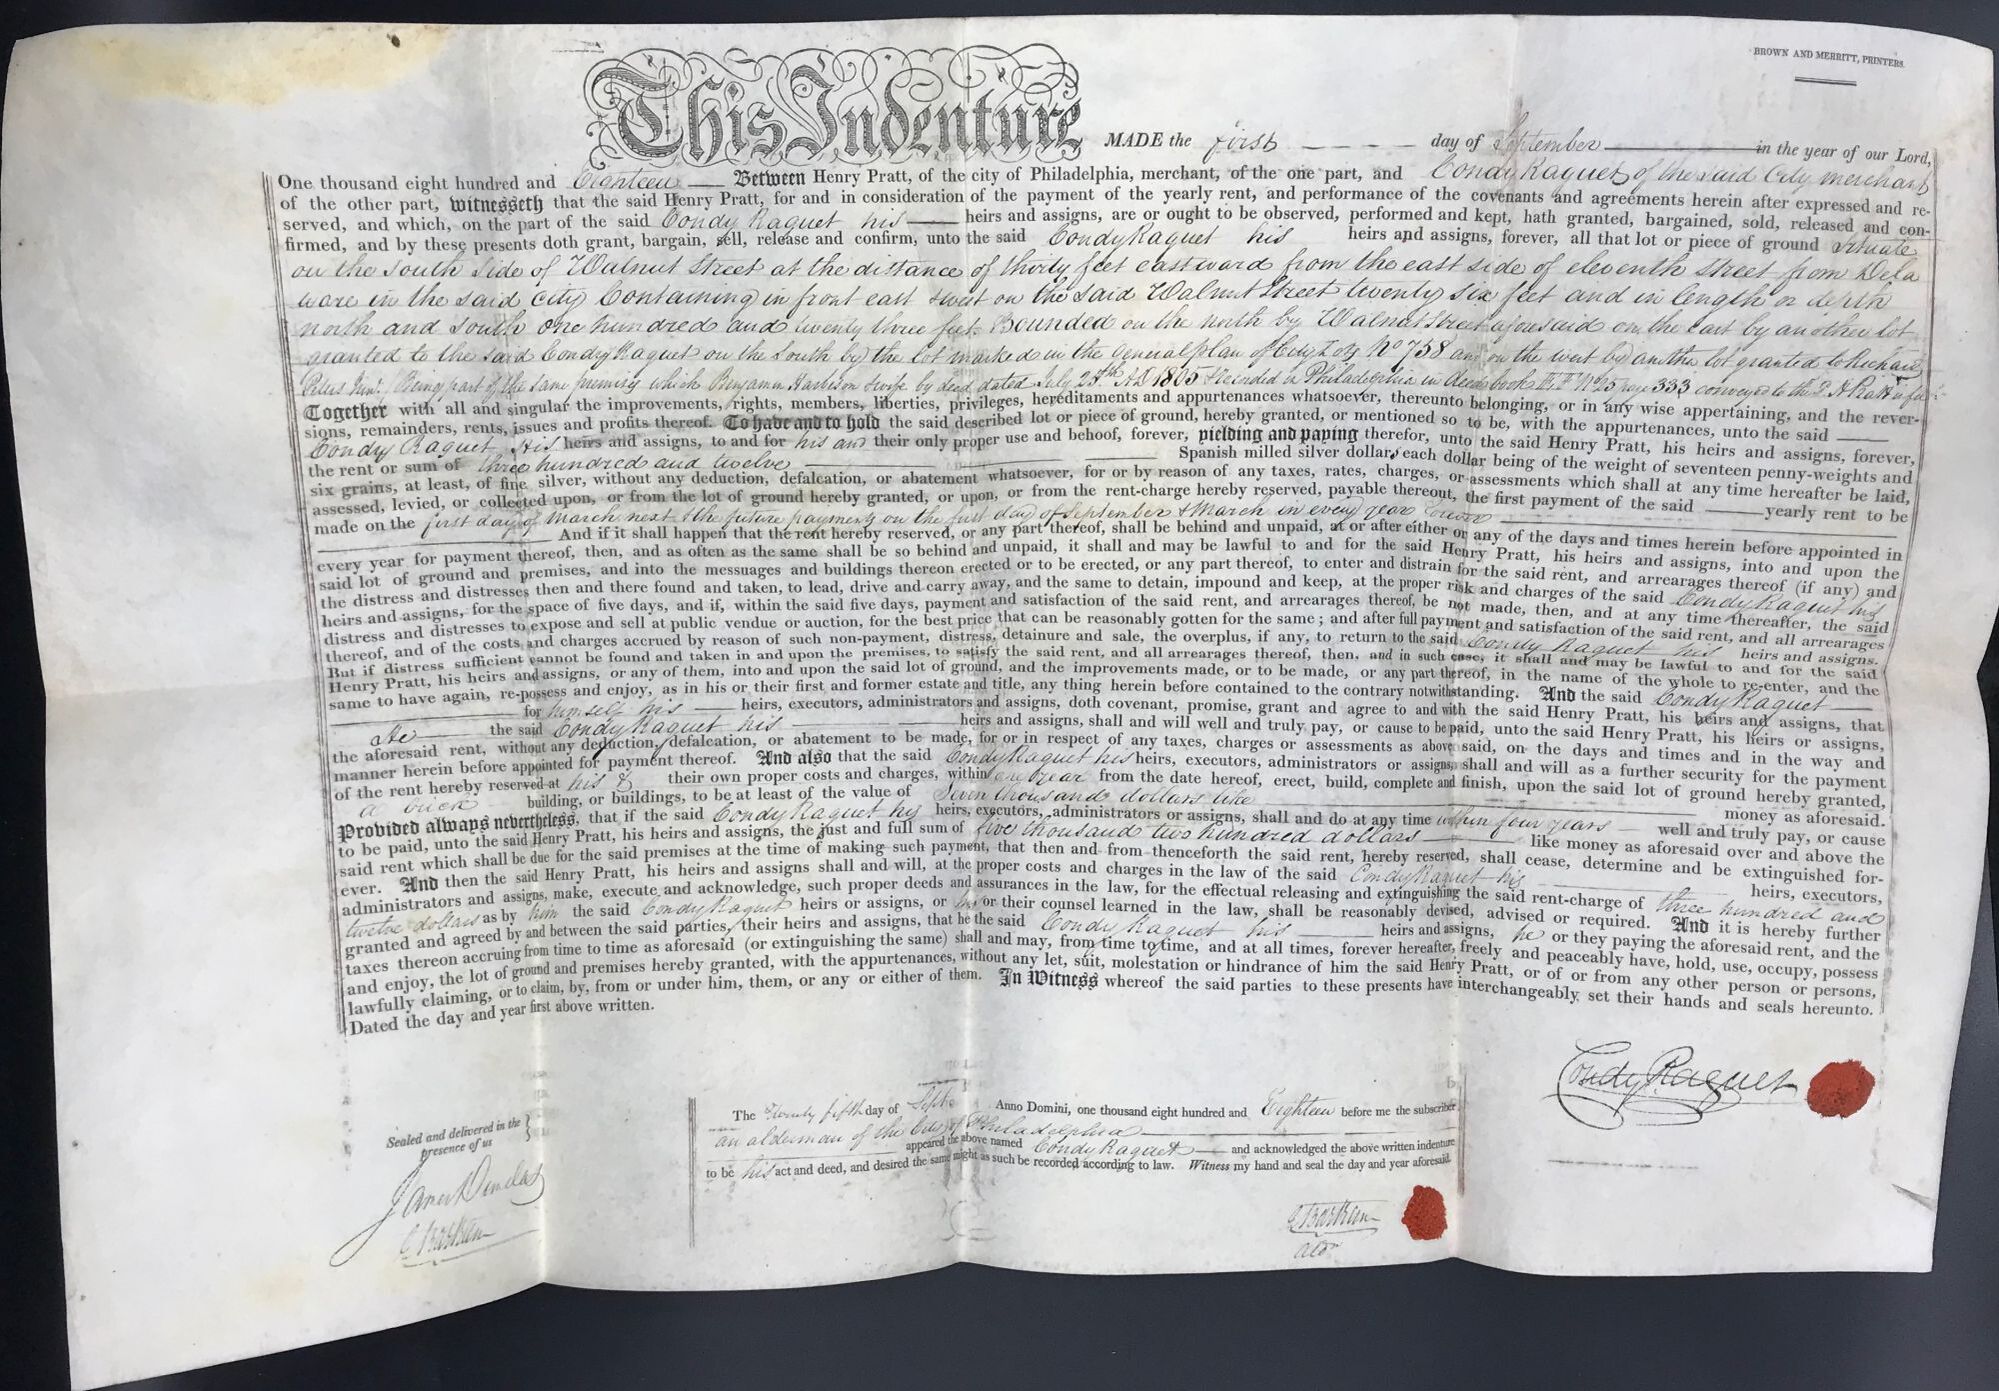 BROWN AND MERRITT, PRINTERS.
This Indenture MADE the first day of September in the year of our Lord,
One thousand eight hundred and Eighteen Between Henry Pratt, of the city of Philadelphia, merchant, of the one part, and Condy Raguet of the said City merchant
of the other part, witnesseth that the said Henry Pratt, for and in consideration of the payment of the yearly rent, and performance of the covenants and agreements herein after expressed and re-
served, and which, on the part of the said Condy Raguet his heirs and assigns, are or ought to be observed, performed and kept, hath granted, bargained, sold, released and con-
firmed, and by these presents doth grant, bargain, sell, release and confirm, unto the said Condy Raguet his heirs and assigns, forever, all that lot or piece of ground Situate
on the south side of Walnut Street at the distance of thirty feet eastward from the east side of eleventh Street from Dela
ware in the said city Containing in front east & west on the said Walnut Street twenty six feet and in length or depth
north and south one hundred and twenty three feet Bounded on the north by Walnut Street aforesaid on the east by another lot
granted to the said Condy Raguet on the South by the lot marked in the general plan of City Lots No 738 and on the west by another lot granted to Richard
Peters Junr. Being part of the same premises which Benjamin Harbison & wife by deed dated July 25th AD 1805 & recorded in Philadelphia in deed book No 25 page 333 conveyed to the sd H Pratt in fee
Together with all and singular the improvements, rights, members, liberties, privileges, hereditaments and appurtenances whatsoever, thereunto belonging, or in any wise appertaining, and the rever-
sions, remainders, rents, issues and profits thereof. To have and to hold the said described lot or piece of ground, hereby granted, or mentioned so to be, with the appurtenances, unto the said
Condy Raguet His heirs and assigns, to and for his and their only proper use and behoof, forever, yielding and paying therefor, unto the said Henry Pratt, his heirs and assigns, forever,
the rent or sum of three hundred and twelve Spanish milled silver dollars, each dollar being of the weight of seventeen penny-weights and
six grains, at least, of fine silver, without any deduction, defalcation, or abatement whatsoever, for or by reason of any taxes, rates, charges, or assessments which shall at any time hereafter be laid,
assessed, levied, or collected upon, or from the lot of ground hereby granted, or upon, or from the rent-charge hereby reserved, payable thereout, the first payment of the said yearly rent to be
made on the first day of March next & the future payments on the first day of September & March in every year forever
And if it shall happen that the rent hereby reserved, or any part thereof, shall be behind and unpaid, at or after either or any of the days and times herein before appointed in
every year for payment thereof, then, and as often as the same shall be so behind and unpaid, it shall and may be lawful to and for the said Henry Pratt, his heirs and assigns, into and upon the
said lot of ground and premises, and into the messuages and buildings thereon erected or to be erected, or any part thereof, to enter and distrain for the said rent, and arrearages thereof (if any) and
the distress and distresses then and there found and taken, to lead, drive and carry away, and the same to detain, impound and keep, at the proper risk and charges of the said Condy Raguet his
heirs and assigns, for the space of five days, and if, within the said five days, payment and satisfaction of the said rent, and arrearages thereof, be not made, then, and at any time thereafter, the said
distress and distresses to expose and sell at public vendue or auction, for the best price that can be reasonably gotten for the same; and after full payment and satisfaction of the said rent, and all arrearages
thereof, and of the costs and charges accrued by reason of such non-payment, distress, detainure and sale, the overplus, if any, to return to the said Condy Raguet his heirs and assigns.
But if distress sufficient cannot be found and taken in and upon the premises, to satisfy the said rent, and all arrearages thereof, then, and in such case, it shall and may be lawful to and for the said
Henry Pratt, his heirs and assigns, or any of them, into and upon the said lot of ground, and the improvements made, or to be made, or any part thereof, in the name of the whole to re-enter, and the
same to have again, re-possess and enjoy, as in his or their first and former estate and title, any thing herein before contained to the contrary notwithstanding. And the said Condy Raguet
for himself his heirs, executors, administrators and assigns, doth covenant, promise, grant and agree to and with the said Henry Pratt, his heirs and assigns, that
He the said Condy Raguet his heirs and assigns, shall and will well and truly pay, or cause to be paid, unto the said Henry Pratt, his heirs or assigns,
the aforesaid rent, without any deduction, defalcation, or abatement to be made, for or in respect of any taxes, charges or assessments as above said, on the days and times and in the way and
manner herein before appointed for payment thereof. And also that the said Condy Raguet his heirs, executors, administrators or assigns, shall and will as a further security for the payment
of the rent hereby reserved at his & their own proper costs and charges, within one year from the date hereof, erect, build, complete and finish, upon the said lot of ground hereby granted,
a brick building, or buildings, to be at least of the value of Seven thousand dollars like money as aforesaid.
Provided always nevertheless, that if the said Condy Raguet his heirs, executors, administrators or assigns, shall and do at any time within four years well and truly pay, or cause
to be paid, unto the said Henry Pratt, his heirs and assigns, the just and full sum of five thousand two hundred dollars like money as aforesaid over and above the
said rent which shall be due for the said premises at the time of making such payment, that then and from thenceforth the said rent, hereby reserved, shall cease, determine and be extinguished for-
ever. And then the said Henry Pratt, his heirs and assigns shall and will, at the proper costs and charges in the law of the said Condy Raguet his heirs, executors,
administrators and assigns, make, execute and acknowledge, such proper deeds and assurances in the law, for the effectual releasing and extinguishing the said rent-charge of three hundred and
twelve dollars as by him the said Condy Raguet heirs or assigns, or his or their counsel learned in the law, shall be reasonably devised, advised or required. And it is hereby further
granted and agreed by and between the said parties, their heirs and assigns, that he the said Condy Raguet his heirs and assigns, he or they paying the aforesaid rent, and the
taxes thereon accruing from time to time as aforesaid (or extinguishing the same) shall and may, from time to time, and at all times, forever hereafter, freely and peaceably have, hold, use, occupy, possess
and enjoy, the lot of ground and premises hereby granted, with the appurtenances, without any let, suit, molestation or hindrance of him the said Henry Pratt, or of or from any other person or persons,
lawfully claiming, or to claim, by, from or under him, them, or any or either of them. In Witness whereof the said parties to these presents have interchangeably set their hands and seals hereunto.
Dated the day and year first above written.
Condy Raguet
Sealed and delivered in the
presence of us
James Dundas
C Bartram
The Twenty fifth day of Septr Anno Domini, one thousand eight hundred and Eighteen before me the subscriber
an alderman of the City of Philadelphia
appeared the above named Condy Raguet and acknowledged the above written indenture
to be his act and deed, and desired the same might as such be recorded according to law. Witness my hand and seal the day and year aforesaid.
C Bartram
aldn